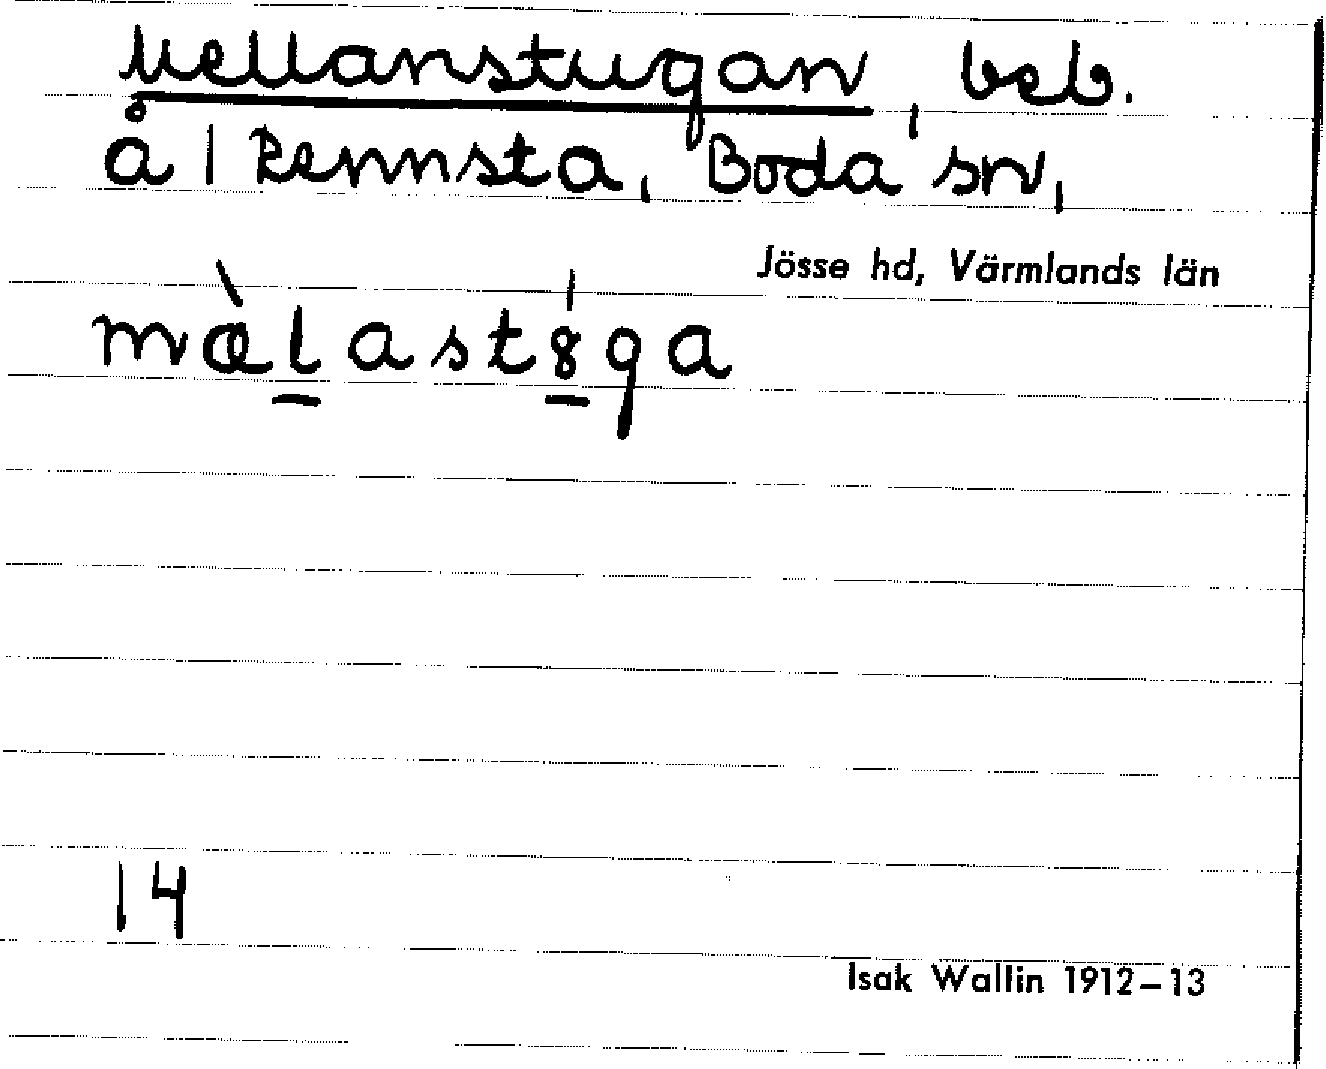 Mellanstugan, beb.
å 1 Rennsta, Boda sn,
Jösse hd, Värmlands län
mælastꝏga
14
Isak Wallin 1912–13